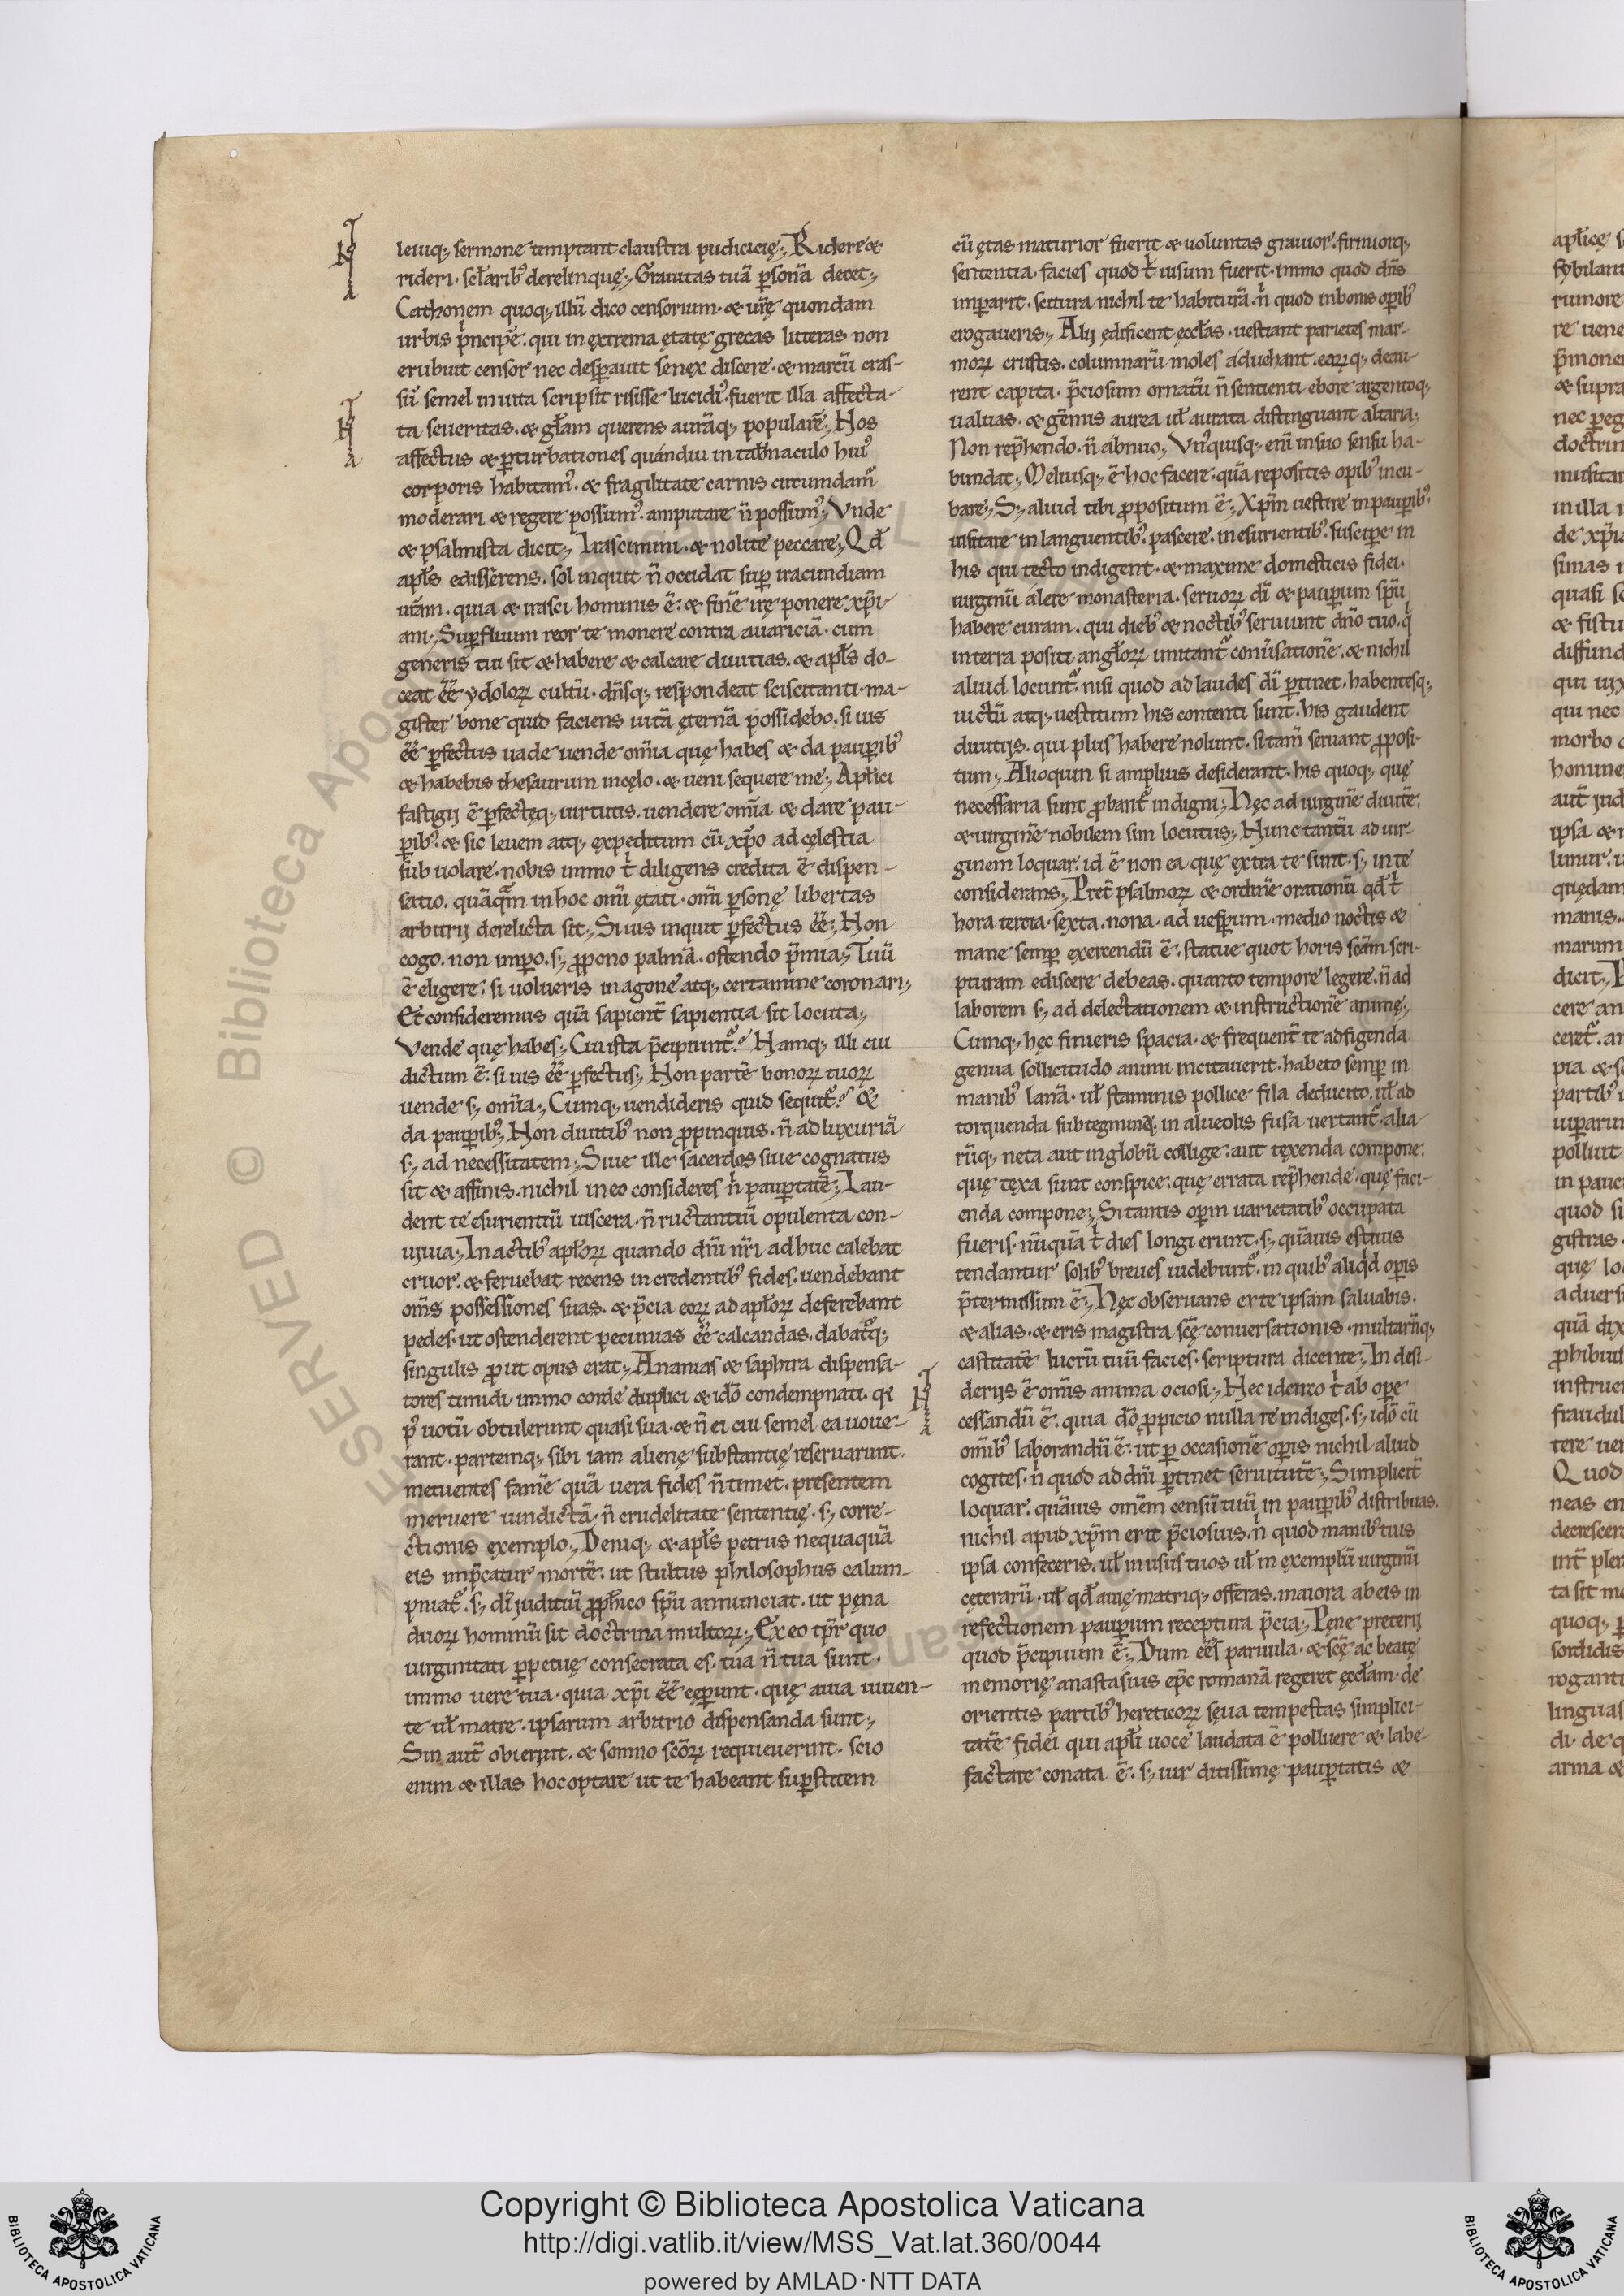 leuiq; sermone temptant claustra pudicicię; Ridere &
rideri. sclarib; derelinquę; Grauitas tuā psonā decet;
Cathonem quoq; illū dico censorium. & urę quondam
urbis pncipē. qui in extrema ętatę grecas litteras non
erubuit censor nec despauit senex discere. & marcū cras-
sū semel in uita scripsit risisse lucidi. fuerit illa affecta-
ta seueritas. & glam querens aurāq; popularē; Hos
affectus & pturbationes quamdiu in tabnaculo hui
corporis habitam. & fragilitate carnis circumdam
moderari & regere possum. amputare n possum; Vnde
& psalmista dicit; Irascimini. & nolite peccare; Qd
apls edisserens. sol inquit n occidat sup iracundiam
urām. quia & irasci hominis ē. & finē irę ponere xpi-
ani; Supfluum reor te monere contra auariciā. cum
generis tui sit & habere & calcare diuitias. & apls do-
ceat ēē ydoloꝝ cultū. dnsq; respondeat sciscitanti. ma-
gister bone quid faciens uitā ęternā possidebo. si uis
ēē pfectus uade uende omia quę habes & da paupib;
& habebis thesaurum in cęlo. & ueni sequere me; Aplici
fastigij ē pfectęq; uirtutis. uendere omia & dare pau-
pib; & sic leuem atq; expeditum cū xpo ad cęlestia
subuolare. nobis immo t diligens credita ē dispen-
satio. quāqm in hoc omi ętati. omi psonę libertas
arbitrij derelicta sit; Si uis inquit pfectus ēē; Non
cogo. non impo. s; ppono palmā. ostendo pmia; Tuū
ē eligere. si uolueris in agone atq; certamine coronari;
Et consideremus quā sapient sapientia sit locuta;
Vende quę habes; Cui ista pcipiunt? Namq; illi cui
dictum ē. si uis ēē pfectus; Non partē bonoꝝ tuoꝝ
uende s; omia; Cumq; uendideris quid sequit? &
da paupib; Non diuitib; non ppinquis. n ad luxuriā
s; ad necessitatem; Siue ille sacerdos siue cognatus
sit & affinis. nichil in eo consideres n paupertatē; Lau-
dent te esurientiū uiscera. n ructantiū opulenta con-
uiuia; In actib; aploꝝ quando dni nri adhuc calebat
cruor. & feruebat recens in credentib; fides. uendebant
oms possessiones suas. & pcia eoꝝ ad aploꝝ deferebant
pedes. ut ostenderent pecunias ēē calcandas. dabatq;
singulis put opus erat; Ananias & saphira dispensa-
tores timidi. immo corde duplici & ido condempnati. qi
p uotū obtulerunt quasi sua. & n ei cui semel ea uoue-
rant. partemq; sibi iam alienę substantię reseruarunt.
metuentes famē quā uera fides n timet. presentem
meruere uindictā. n crudelitate sententię. s; corre-
ctionis exemplo; Deniq; & apls petrus nequaquā
eis impcatur mortē. ut stultus philosophus calum-
pniat. s; di iuditiū pphico spu annunciat. ut pęna
duoꝝ hominū sit doctrina multoꝝ; Ex eo tpr quo
uirginitati ppetuę consecrata es. tua n tua sunt.
immo uere tua. quia xpi ēē cępunt. quę auia uiuen-
te ul matre. ipsarum arbitrio dispensanda sunt;
Sin aut obierint. & somno scoꝝ requieuerint. scio
enim & illas hoc optare ut te habeant supstitem
cū ętas maturior fuerit & uoluntas grauior. firmiorq;
sententia. facies quod t uisum fuerit. immo quod dns
imparit. scitura nichil te habiturā. n quod in bonis opib;
erogaueris; Alij edificent ęcclas. uestiant parietes mar-
moꝝ crustis. columnarū moles aduehant. earūq; deau-
rent capita. pciosum ornatū n sentienti. ebore argentoq;
ualuas. & gemis aurea ul aurata distinguant altaria;
Non rephendo. n abnuo; Vnquisq; enī in suo sensu ha-
bundat; Meliusq; ē hoc facere. quā repositis opib; incu-
bare; S; aliud tibi ppositum ē; Xpm uestire in paupib;
uisitare in languentib; pascere. in esurientib; suscipe in
his qui tecto indigent. & maxime domesticis fidei.
uirginū alere monasteria. seruoꝝ di & paupum spu
habere curam. qui dieb; & noctib; seruiunt dno tuo. q
in terra positi angloꝝ imitant conusationē. & nichil
aliud locunt. nisi quod ad laudes di ptinet. habentesq;
uictū atq; uestitum his contenti sunt. his gaudent
diuitijs. qui plus habere nolunt. si tam seruant pposi-
tum; Alioquin si amplius desiderant. his quoq; quę
necessaria sunt pbant indigni; Hęc ad uirginē diuitē.
& uirginē nobilem sim locutus; Nunc tantū ad uir-
ginem loquar. id ē non ea quę extra te sunt. s; in te
considerans; Pret psalmoꝝ & ordinē orationū qd t
hora tertia. sexta. nona. ad uespum. medio noctis &
mane semp exercendū ē. statue quot horis scam scri-
pturam ediscere debeas. quanto tempore legere. n ad
laborem s; ad delectationem & instructionē animę;
Cumq; hęc finieris spacia. & frequent te ad figenda
genua sollicitudo animi incitauerit. habeto semp in
manib; lanā. ul staminis pollice fila deducito. ul ad
torquenda subtegmina. in alueolis fusa uertant. alia-
rūq; neta aut in globū collige. aut texenda compone.
quę texa sunt conspice. quę errata rephende. quę faci-
enda compone; Si tantis opm uarietatib; occupata
fueris. nūquā t dies longi erunt. s; quāuis estiuis
tendantur solib; breues uidebunt. in quib; aliqd opis
ptermissum ē; Hęc obseruans & te ipsam saluabis.
& alias. & eris magistra scę conuersationis. multarūq;
castitatē lucrū tuū facies. scriptura dicente; In desi-
derijs ē omīs anima ociosi; Nec idcirco t ab ope
cessandū ē. quia do ppicio nulla re indiges. s; ido cū
omib; laborandū ē. ut p occasionē opis nichil aliud
cogites. n quod ad dni ptinet seruitutē; Simplicit
loquar. quāuis omem censū tuū in paupib; distribuas.
nichil apud xpm erit pciosius. n quod manib; tuis
ipsa confeceris. ul in usus tuos ul in exemplū uirginū
cęterarū. ul qd auię matriq; offeras. maiora ab eis in
refectionem paupum receptura pcia; Pęne preterij
quod pcipuum ē; Dum ēēs paruula. & scę ac beatę
memorię anastasius epc romanā regeret ęcclam. de
orientis partib; hereticoꝝ sęua tempestas simplici-
tatē fidei qui apli uoce laudata ē polluere & labe-
factare conata ē. s; uir ditissimę paupertatis &
Copyright © Biblioteca Apostolica Vaticana
http://digi.vatlib.it/view/MSS_Vat.lat.360/0044
powered by AMLAD·NTT DATA